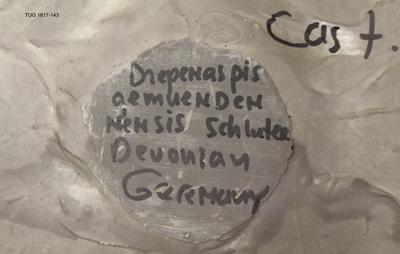 TUG 1817-143
Cast.
Drepenaspis
gemuenden
nensis Schluter
Devonian
Germany